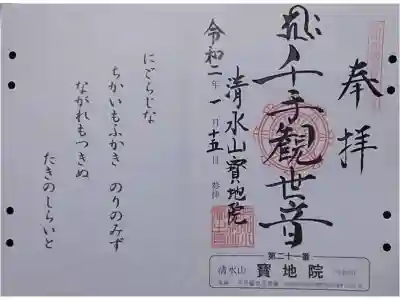 奉拝
千手観世音
清水山寳地院
令和二年一月十五日
にごらじな
ちかいもふかき のりのみず
ながれもつきぬ
たきのしらいと
第二十一番
清水山 寳地院